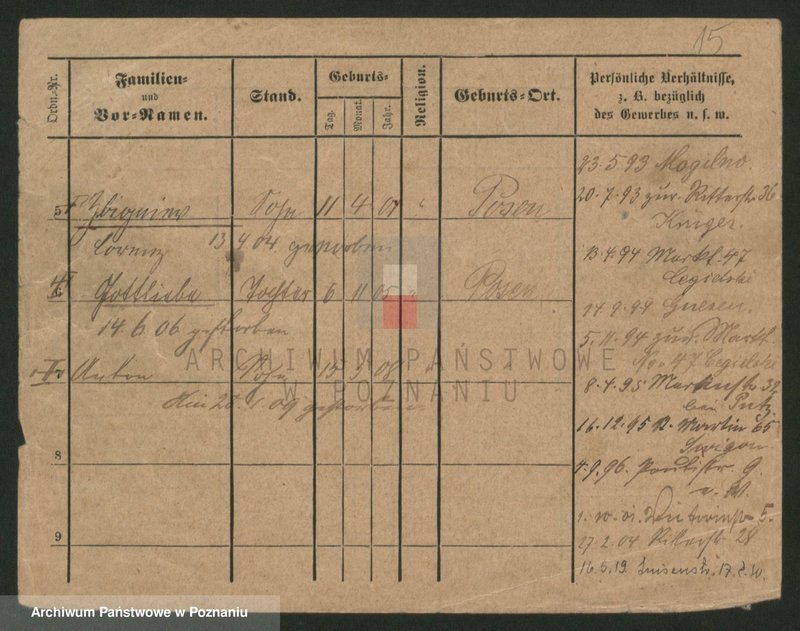 15
Ordn.-Nr.
Familien-
und
Vor-Namen.
Stand.
Geburts-
Tag.
Monat.
Jahr.
Religion.
Geburts-Ort.
Persönliche Verhältnisse,
z. B. bezüglich
des Gewerbes u. s. w.
5 Zbigniew Sohn 11 4 04 " Posen
Lorenz 13 4 04 gestorben
6 Gottliebe Tochter 6 11 05 " Posen
14.6.06 gestorben
Anton Sohn 13 5 08
28.1.09 gestorben
8
9
23.5.93 Mogilno
20.7.93 zur. Ritterstr. 36
Krüger.
13.4.94 Markt 47
Cegielski
14.9.94 Gnesen.
5.11.94 zur. Markt
No. 47 Cegielski
8.4.95 Markt 32
bei Putz
16.12.95 St. Martin 65
4.9.96. Paulistr. 9.
27.2.04 Ritterstr. 28
16.5.19. Luisenstr. 17.
ARCHIWUM PAŃSTWOWE
W POZNANIU
Archiwum Państwowe w Poznaniu